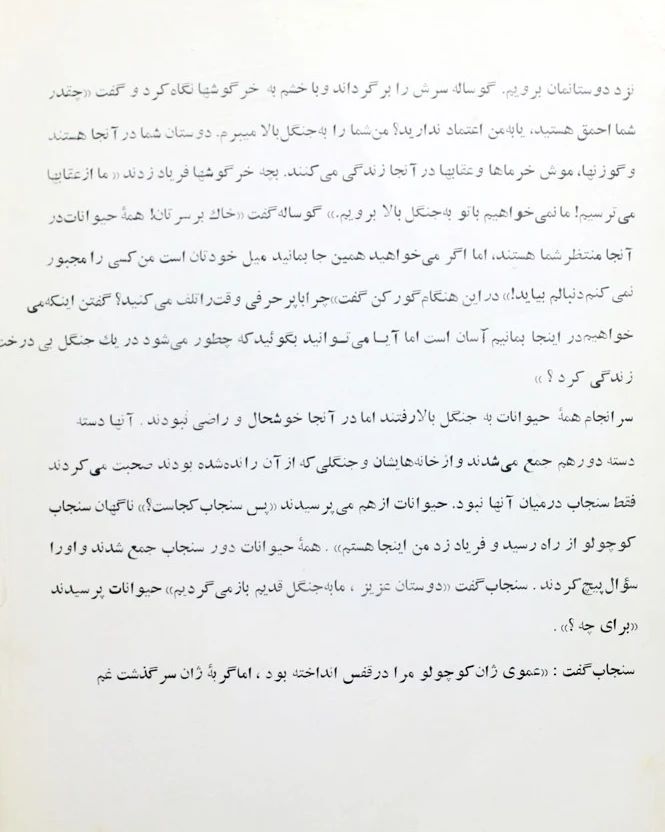 نزد دوستانمان برویم. گوساله سرش را برگرداند وبا خشم به خرگوشها نگاه کرد و گفت «چقدر
شما احمق هستید، یابه‌من اعتماد ندارید؟ من‌شما را به‌جنگل‌بالا میبرم. دوستان شما در آنجا هستند
و گوزنها، موش خرماها و عقابها در آنجا زندگی می‌کنند. بچه خرگوشها فریاد زدند «ما ازعقابها
می‌ترسیم! ما نمی‌خواهیم باتو به‌جنگل بالا برویم.» گوساله‌گفت «خاك بر سرتان! همهٔ حیوانات‌در
آنجا منتظر شما هستند، اما اگر می‌خواهید همین جا بمانید میل خودتان است من‌کسی را مجبور
نمی کنم‌دنبالم بیاید!» در این هنگام‌گورکن گفت«چرا باپرحرفی وقت‌راتلف می‌کنید؟ گفتن اینکه‌می
خواهیم‌در اینجا بمانیم آسان است اما آیـا می‌تـوانید بگوئیدکه چطور می‌شود در یك جنگل بی درخت
زندگی کرد؟»
سرانجام همهٔ حیوانات به جنگل بالارفتند اما در آنجا خوشحال و راضی نبودند . آنها دسته
دسته دورهم جمع می‌شدند وازخانه‌هایشان و جنگلی‌که از آن رانده‌شده بودند صحبت می‌کردند
فقط سنجاب درمیان آنها نبود. حیوانات از هم می‌پرسیدند «پس سنجاب کجاست؟» ناگهان سنجاب
کوچولو از راه رسید و فریاد زد من اینجا هستم» . همهٔ حیوانات دور سنجاب جمع شدند واورا
سؤال‌پیچ کردند . سنجاب‌گفت «دوستان عزیز ، مابه‌جنگل قدیم بازمی‌گردیم» حیوانات پرسیدند
«برای چه ؟» .
سنجاب‌گفت : «عموی ژان‌کوچولو مرا درقفس انداخته بود ، اماگربهٔ ژان سرگذشت غم